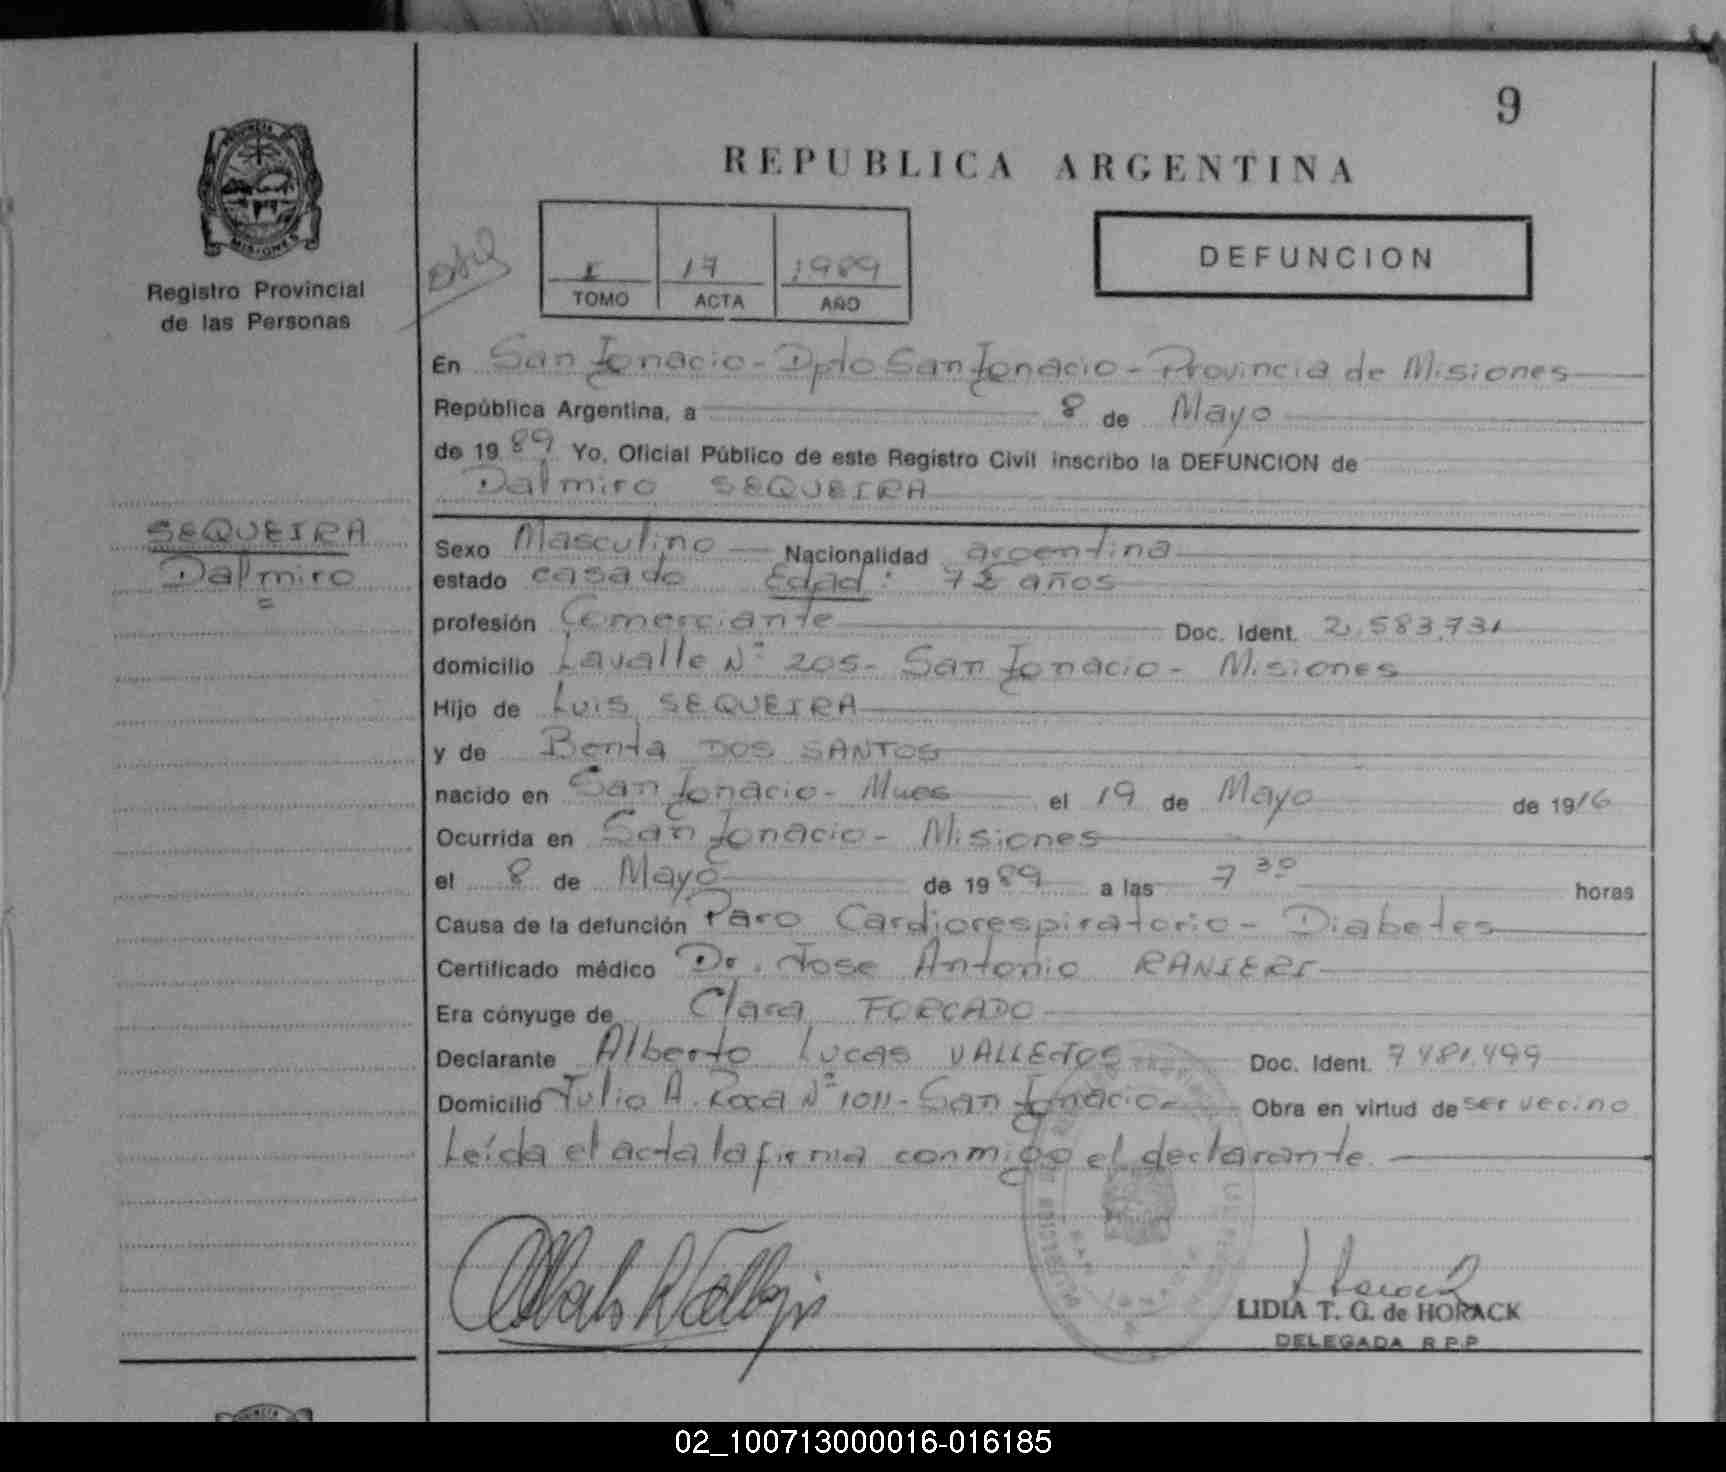 9
REPUBLICA ARGENTINA
PROVINCIA
MISIONES
Registro Provincial
de las Personas
I 17 1989
TOMO ACTA AÑO
DEFUNCION
En San Ignacio - Dpto San Ignacio - Provincia de Misiones
República Argentina, a 8 de Mayo
de 1989 Yo, Oficial Público de este Registro Civil inscribo la DEFUNCION de
Dalmiro SEQUEIRA
SEQUEIRA
Dalmiro
Sexo Masculino Nacionalidad argentina
estado casado Edad: 72 años
profesión Comerciante Doc. Ident. 2.583.731
domicilio Lavalle Nº 205 - San Ignacio - Misiones
Hijo de Luis SEQUEIRA
y de Benta DOS SANTOS
nacido en San Ignacio - Mnes el 19 de Mayo de 1916
Ocurrida en San Ignacio - Misiones
el 8 de Mayo de 1989 a las 7 30 horas
Causa de la defunción Paro Cardiorespiratorio - Diabetes
Certificado médico Dr. Jose Antonio RANIERI
Era cónyuge de Clara FORCADO
Declarante Alberto Lucas VALLEJOS Doc. Ident. 7.481.499
Domicilio Julio A. Roca Nº 1011 - San Ignacio - Obra en virtud de ser vecino
Leída el acta la firma conmigo el declarante.
LIDIA T. G. de HORACK
DELEGADA R.P.P
02_100713000016-016185